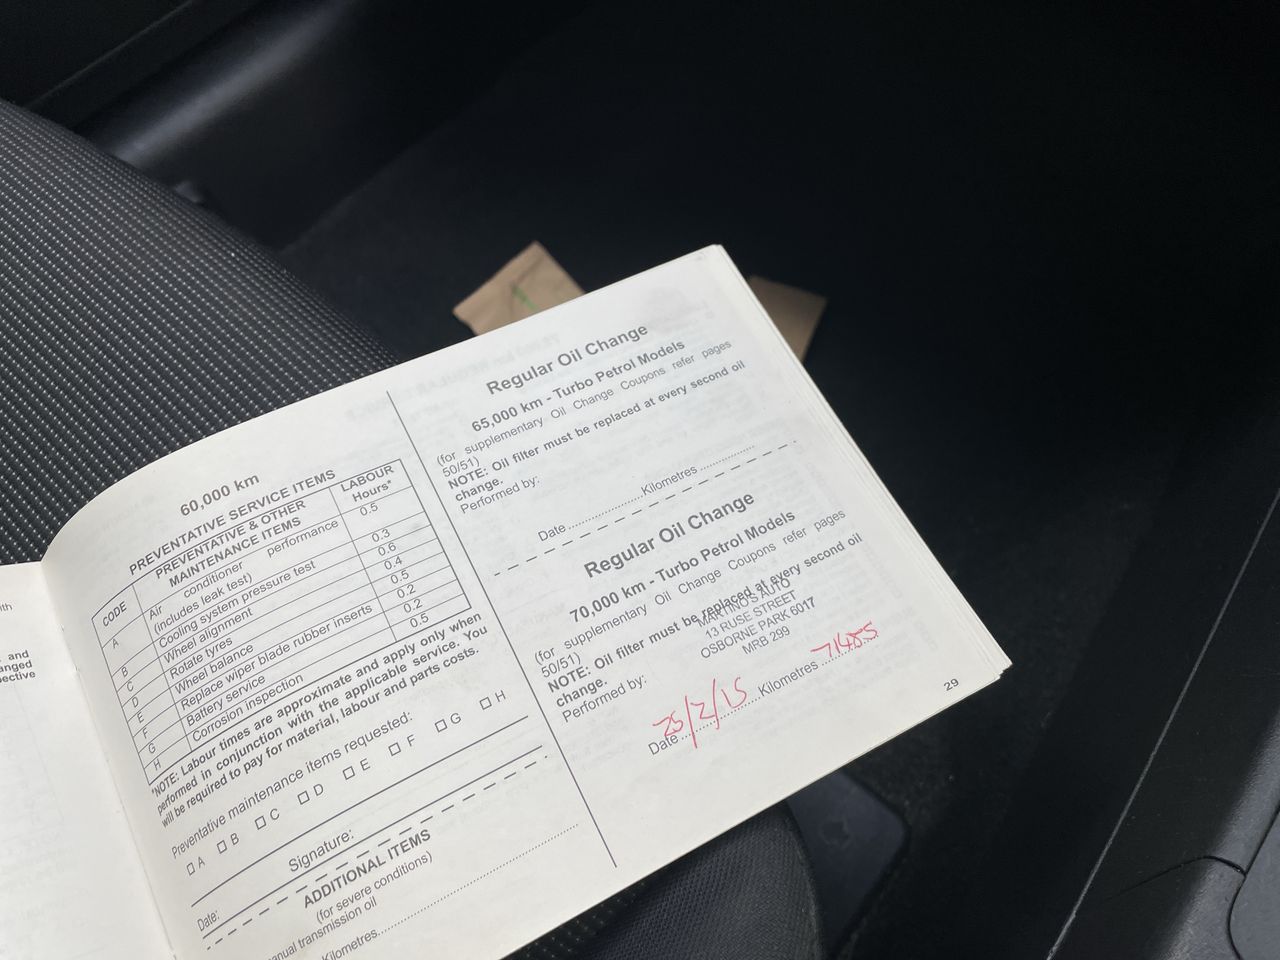 lth
and
anged
pective
60,000 km
PREVENTATIVE SERVICE ITEMS
CODE
PREVENTATIVE & OTHER
MAINTENANCE ITEMS
LABOUR
Hours*
A
Air conditioner performance
(includes leak test)
0.5
B
Cooling system pressure test
0.3
C
Wheel alignment
0.6
D
Rotate tyres
0.4
E
Wheel balance
0.5
F
Replace wiper blade rubber inserts
0.2
G
Battery service
0.2
H
Corrosion inspection
0.5
*NOTE: Labour times are approximate and apply only when
performed in conjunction with the applicable service. You
will be required to pay for material, labour and parts costs.
Preventative maintenance items requested:
□ A □ B □ C □ D □ E □ F □ G □ H
Signature:
Date:
ADDITIONAL ITEMS
(for severe conditions)
anual transmission oil
Kilometres
Regular Oil Change
65,000 km - Turbo Petrol Models
(for supplementary Oil Change Coupons refer pages
50/51)
NOTE: Oil filter must be replaced at every second oil
change.
Performed by:
Date ....................Kilometres ..............
Regular Oil Change
70,000 km - Turbo Petrol Models
(for supplementary Oil Change Coupons refer pages
50/51)
NOTE: Oil filter must be replaced at every second oil
change.
Performed by:
MARTINO'S AUTO
13 RUSE STREET
OSBORNE PARK 6017
MRB 299
Date 25/2/15 Kilometres 71485
29